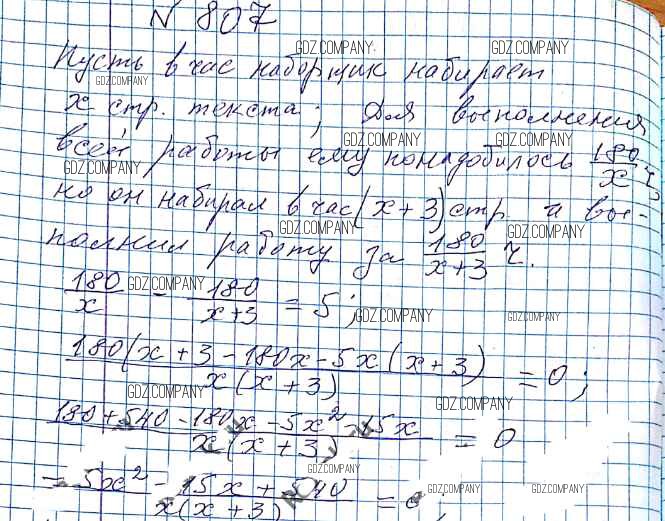 N 807
GDZ.COMPANY GDZ.COMPANY
Пусть в час наборщик набирает
GDZ.COMPANY
x стр. текста; Для выполнения
GDZ.COMPANY GDZ.COMPANY
всей работы ему понадобилось 180/x ч,
GDZ.COMPANY
но он набирал в час (x+3) стр и вы-
GDZ.COMPANY GDZ.COMPANY
полнил работу за 180/x+3 ч.
GDZ.COMPANY GDZ.COMPANY
180/x - 180/x+3 = 5;
GDZ.COMPANY GDZ.COMPANY
180(x+3-180x-5x(x+3)/x(x+3) = 0;
GDZ.COMPANY GDZ.COMPANY
180+540-180x-5x²-15x/x(x+3) = 0
GDZ.COMPANY GDZ.COMPANY GDZ.COMPANY
-5x²-15x+540/x(x+3) = 0;
GDZ.COMPANY GDZ.COMPANY